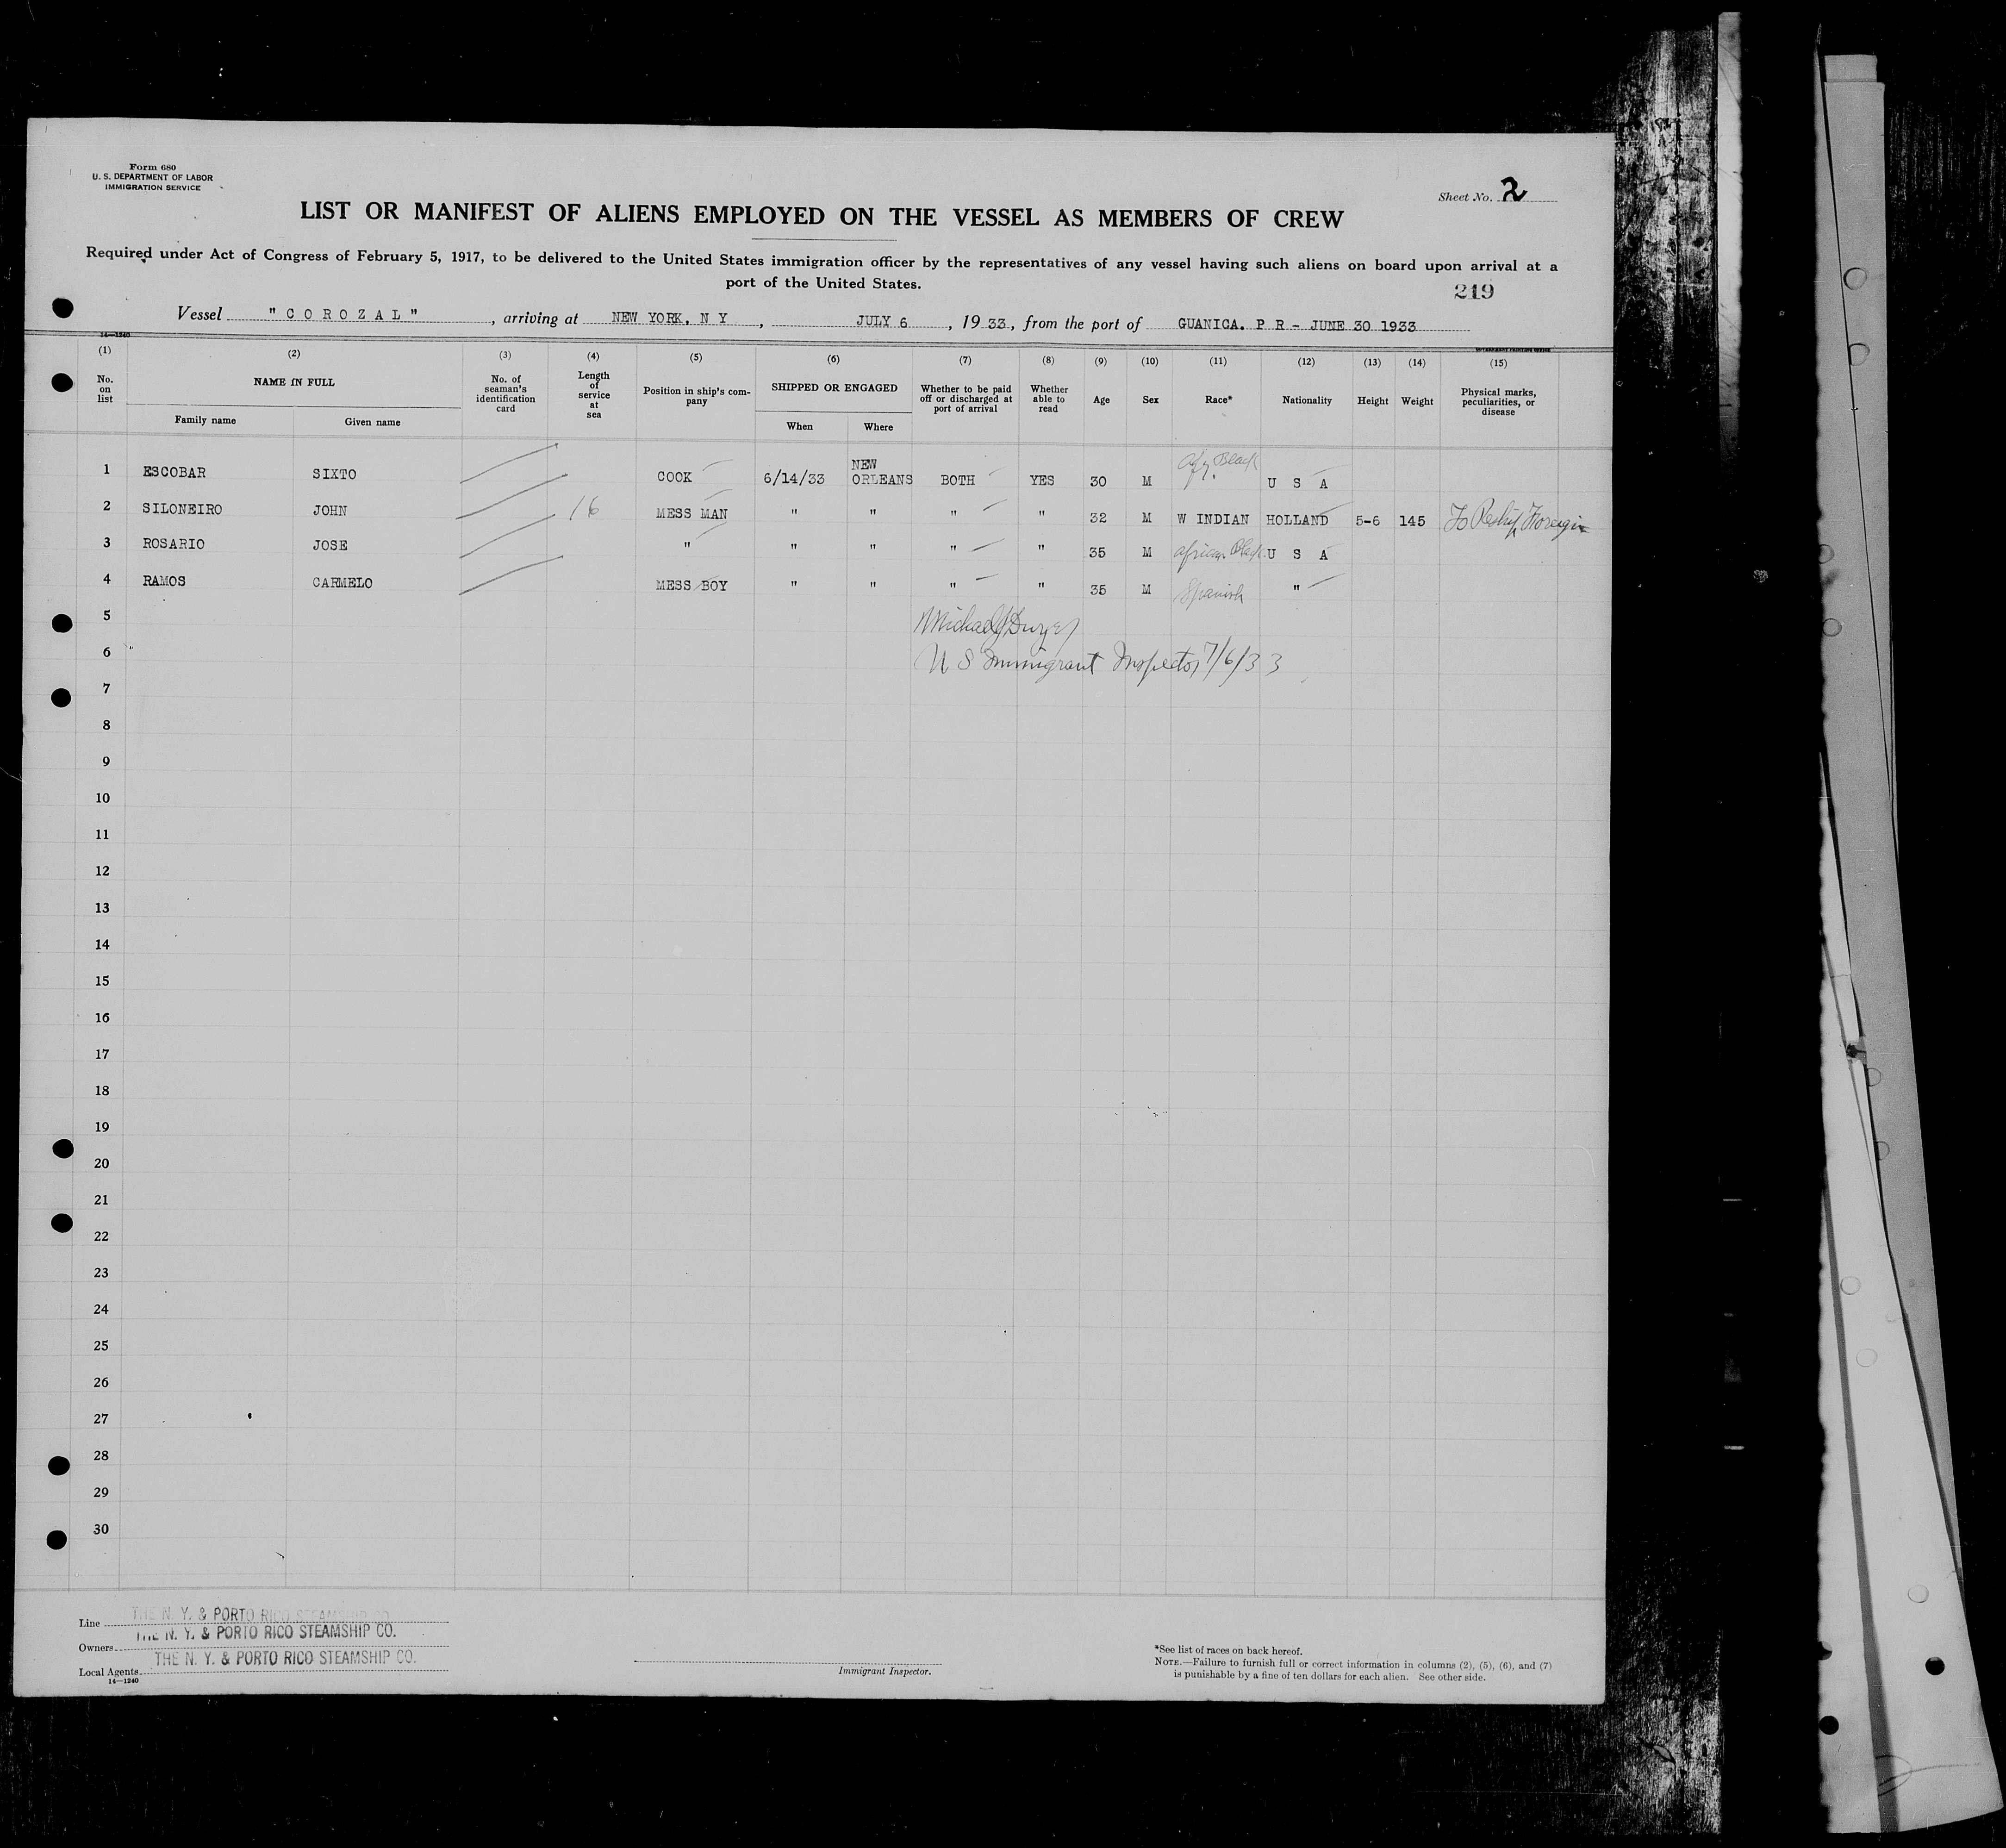 Form 680
U. S. DEPARTMENT OF LABOR
IMMIGRATION SERVICE
Sheet No. 2
LIST OR MANIFEST OF ALIENS EMPLOYED ON THE VESSEL AS MEMBERS OF CREW
Required under Act of Congress of February 5, 1917, to be delivered to the United States immigration officer by the representatives of any vessel having such aliens on board upon arrival at a
port of the United States.
219
Vessel " C O R O Z A L " , arriving at NEW YORK, N Y , JULY 6 , 19 33, from the port of GUANICA. P R - JUNE 30 1933
14—1240
(1) (2) (3) (4) (5) (6) (7) (8) (9) (10) (11) (12) (13) (14) (15)
No. on list NAME IN FULL Family name Given name No. of seaman's identification card Length of service at sea Position in ship's company SHIPPED OR ENGAGED When Where Whether to be paid off or discharged at port of arrival Whether able to read Age Sex Race* Nationality Height Weight Physical marks, peculiarities, or disease
1 ESCOBAR SIXTO COOK 6/14/33 NEW ORLEANS BOTH YES 30 M Afr. Black U S A
2 SILONEIRO JOHN 16 MESS MAN " " " " 32 M W INDIAN HOLLAND 5-6 145 To Reship Foreign
3 ROSARIO JOSE " " " " " 35 M African Black U S A
4 RAMOS CARMELO MESS BOY " " " " 35 M Spanish "
5 Michael J Dwyer
6 U S Immigrant Inspector 7/6/33
7
8
9
10
11
12
13
14
15
16
17
18
19
20
21
22
23
24
25
26
27
28
29
30
Line THE N. Y. & PORTO RICO STEAMSHIP CO.
Owners THE N. Y. & PORTO RICO STEAMSHIP CO.
Local Agents THE N. Y. & PORTO RICO STEAMSHIP CO.
14—1240
Immigrant Inspector.
*See list of races on back hereof.
NOTE.—Failure to furnish full or correct information in columns (2), (5), (6), and (7)
is punishable by a fine of ten dollars for each alien. See other side.